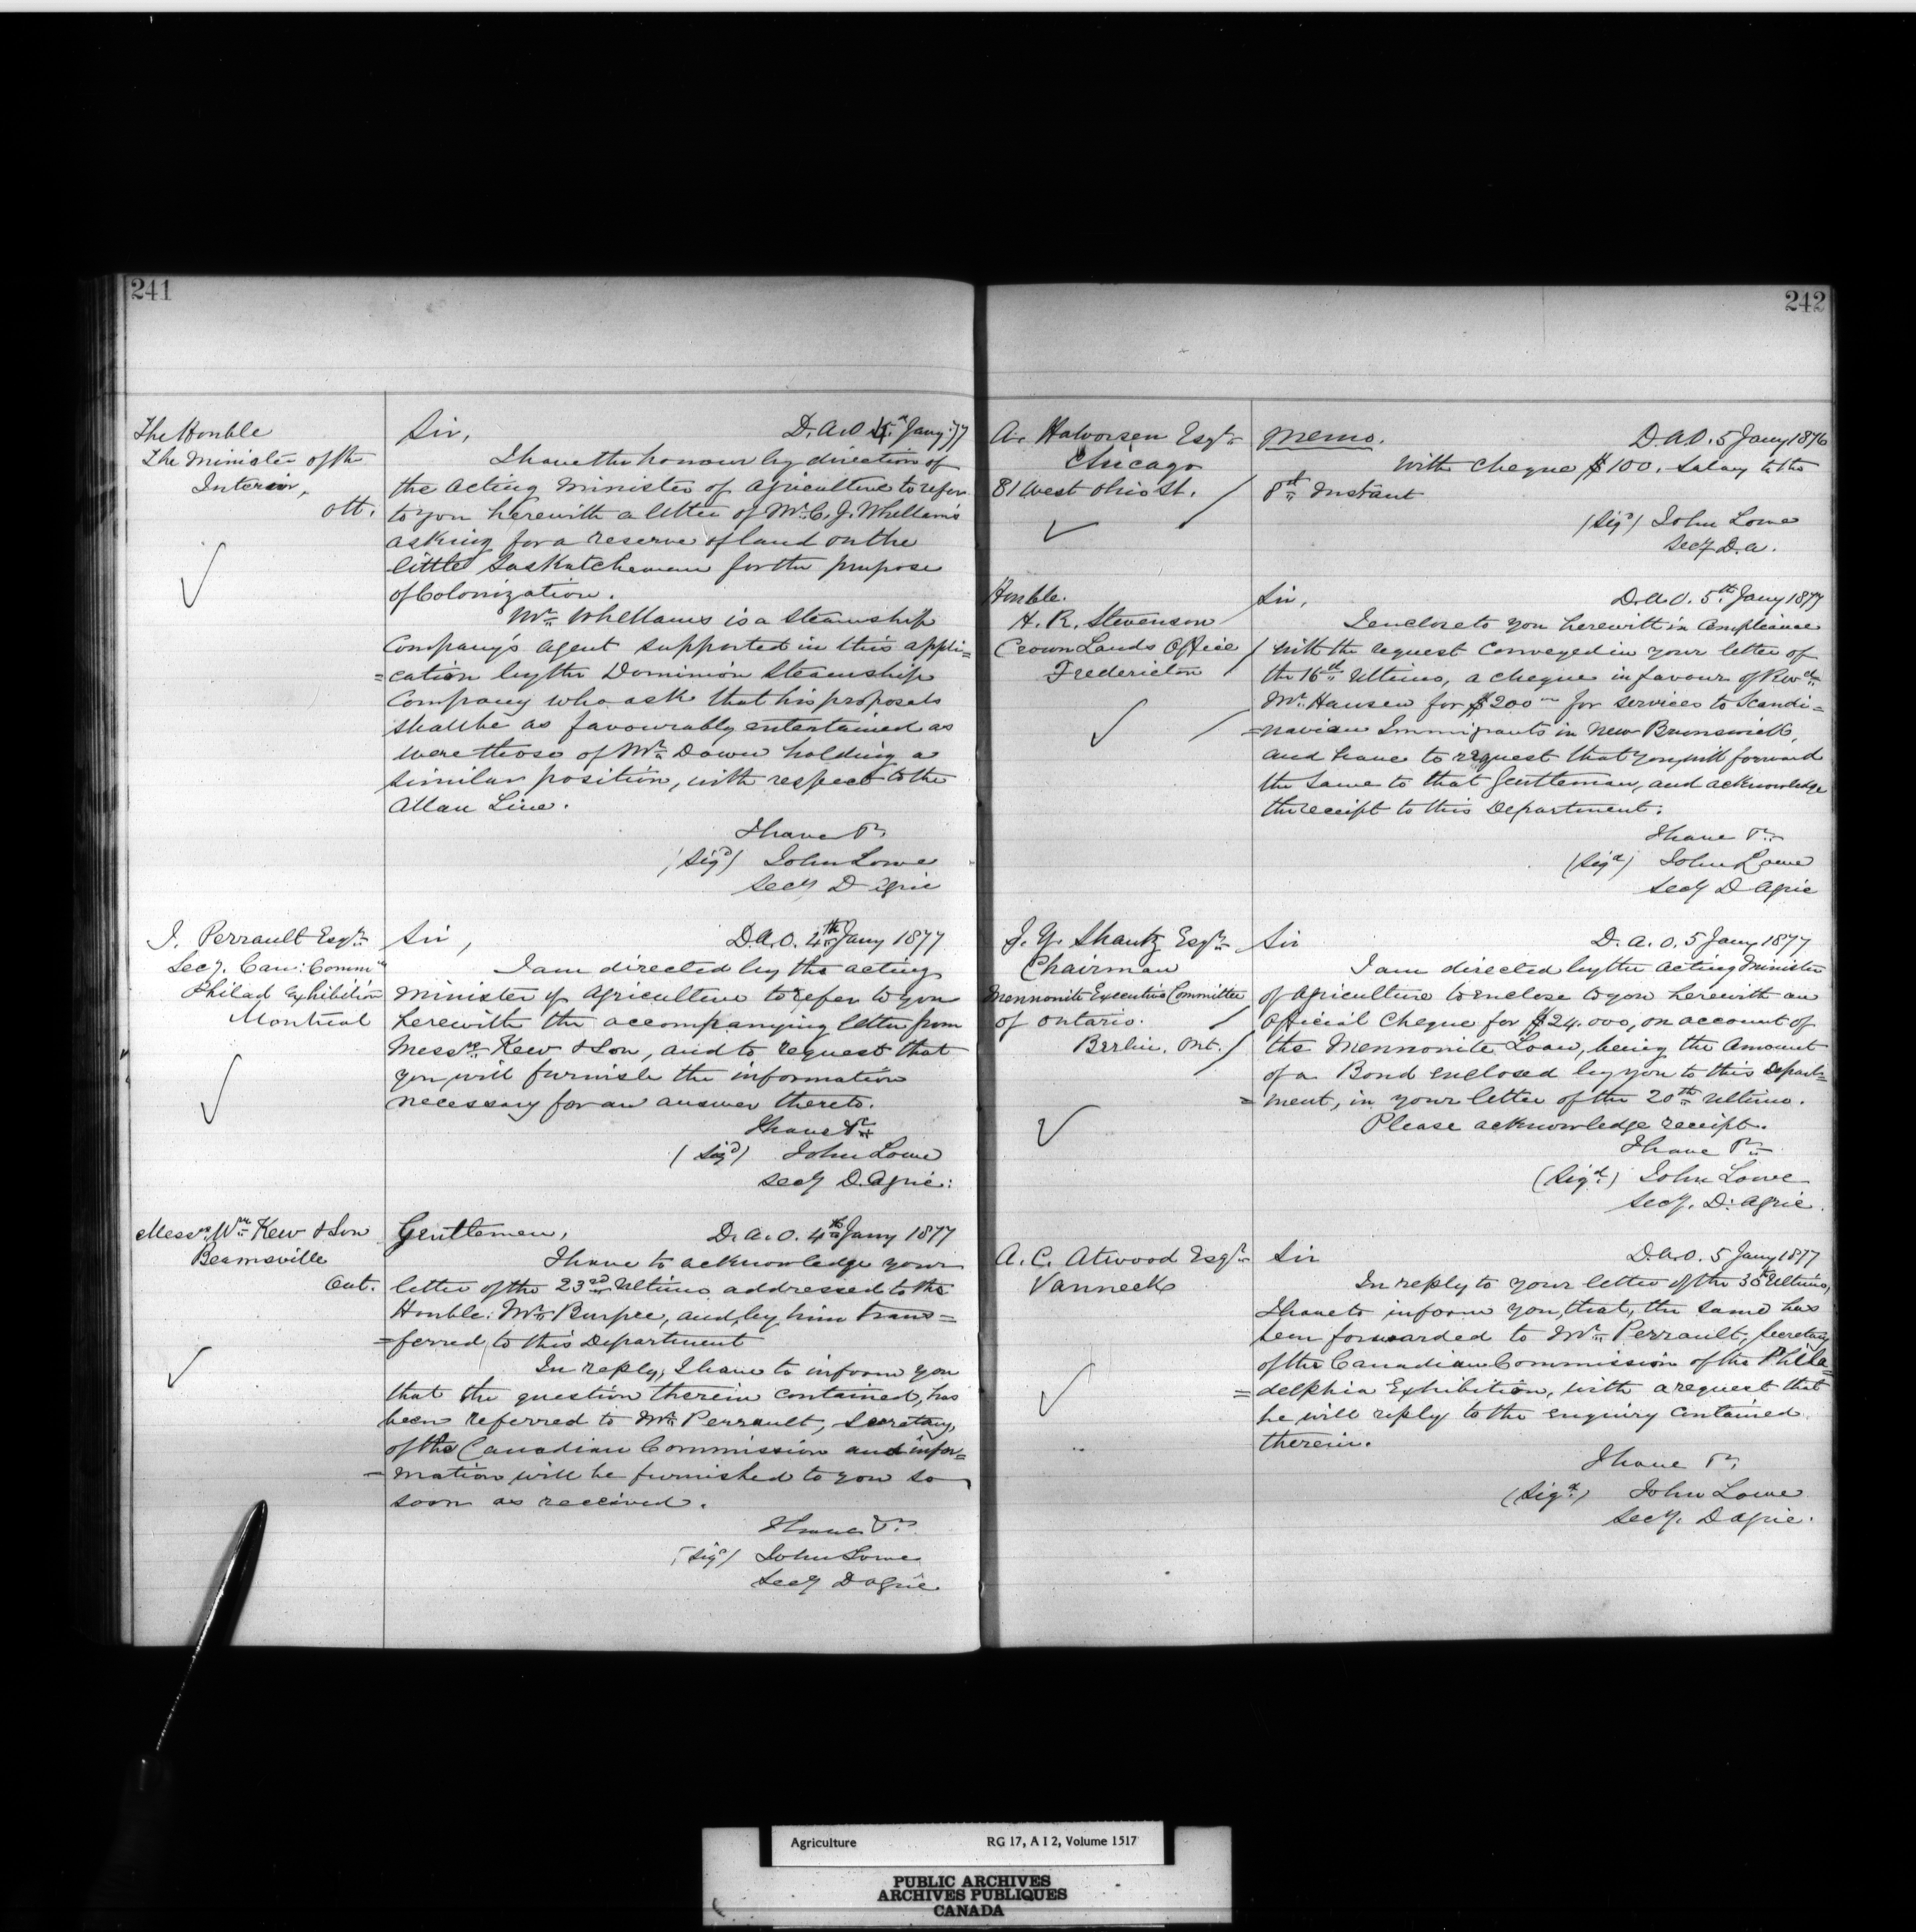 241
The Honble
The Minister of the
Interior,
Ott.
Sir, D.A.O 4th Jany. 77
I have the honour by direction of
the Acting Minister of Agriculture to refer
to you herewith a letter of Mr. C. J. Whellams
asking for a reserve of land on the
little Saskatchewan for the purpose
of Colonization.
Mr. Whellams is a Steamship
Company's agent supported in this appli=
=cation by the Dominion Steamship
Company who ask that his proposals
shall be as favourably entertained as
were those of Mr. Down holding a
similar position, with respect to the
Allan Line.
I have &c
(Sigd) John Lowe
Secy D Agric
J. Perrault Esqr.
Secy. Can: Commn
Philad Exhibition
Montreal
Sir, D.A.O. 4th Jany 1877
I am directed by the acting
Minister of Agriculture to refer to you
herewith the accompanying letter from
Messrs. Kew & Son, and to request that
you will furnish the information
necessary for an answer thereto.
I have &c
(Sigd) John Lowe
Secy D. Agric:
Messrs. Wm. Kew & Son
Beamsville
Ont.
Gentlemen, D.A.O. 4th Jany 1877
I have to acknowledge your
letter of the 23rd Ultimo addressed to the
Honble: Mr. Burpee, and by him trans=
=ferred to this Department
In reply, I have to inform you
that the question therein contained, has
been referred to Mr. Perrault, Secretary,
of the Canadian Commission and infor=
=mation will be furnished to you so
soon as received.
I have &c
(Sigd) John Lowe
Secy D Agric
242
A. Halvorsen Esqr.
Chicago
81 West Ohio St.
Memo. D.A.O. 5 Jany 1876
With cheque $100. Salary to the
8th Instant
(Sigd) John Lowe
Secy D.A.
Honble.
H. R. Stevenson
Crown Lands Office
Fredericton
Sir, D.A.O. 5th Jany 1877
I enclose to you herewith in Compliance
with the request Conveyed in your letter of
the 16th Ultimo, a cheque in favour of Revd.
Mr. Hansen for $200 for services to Scandi=
=navian Immigrants in New Brunswick,
and have to request that you will forward
the same to that Gentleman, and acknowledge
the receipt to this Department.
I have &c
(Sigd) John Lowe
Secy D Agric
J. Y. Shantz Esqr.
Chairman
Mennonite Executive Committee
of Ontario.
Berlin. Ont.
Sir D.A.O. 5 Jany 1877
I am directed by the Acting Minister
of Agriculture to enclose to you herewith an
Official Cheque for $24.000, on account of
the Mennonite Loan, being the Amount
of a Bond enclosed by you to this Depart=
=ment, in your letter of the 20th Ultimo.
Please acknowledge receipt.
I have &c
(Sigd) John Lowe
Secy. D. Agric.
A. C. Atwood Esqr.
Vanneck
Sir D.A.O. 5 Jany 1877
In reply to your letter of the 30th Ultimo,
I have to inform you, that, the same has
been forwarded to Mr. Perrault, Secretary
of the Canadian Commission of the Phila=
=delphia Exhibition, with a request that
he will reply to the enquiry contained
therein.
I have &c
(Sigd) John Lowe
Secy. D Agric.
Agriculture RG 17, A I 2, Volume 1517
PUBLIC ARCHIVES
ARCHIVES PUBLIQUES
CANADA